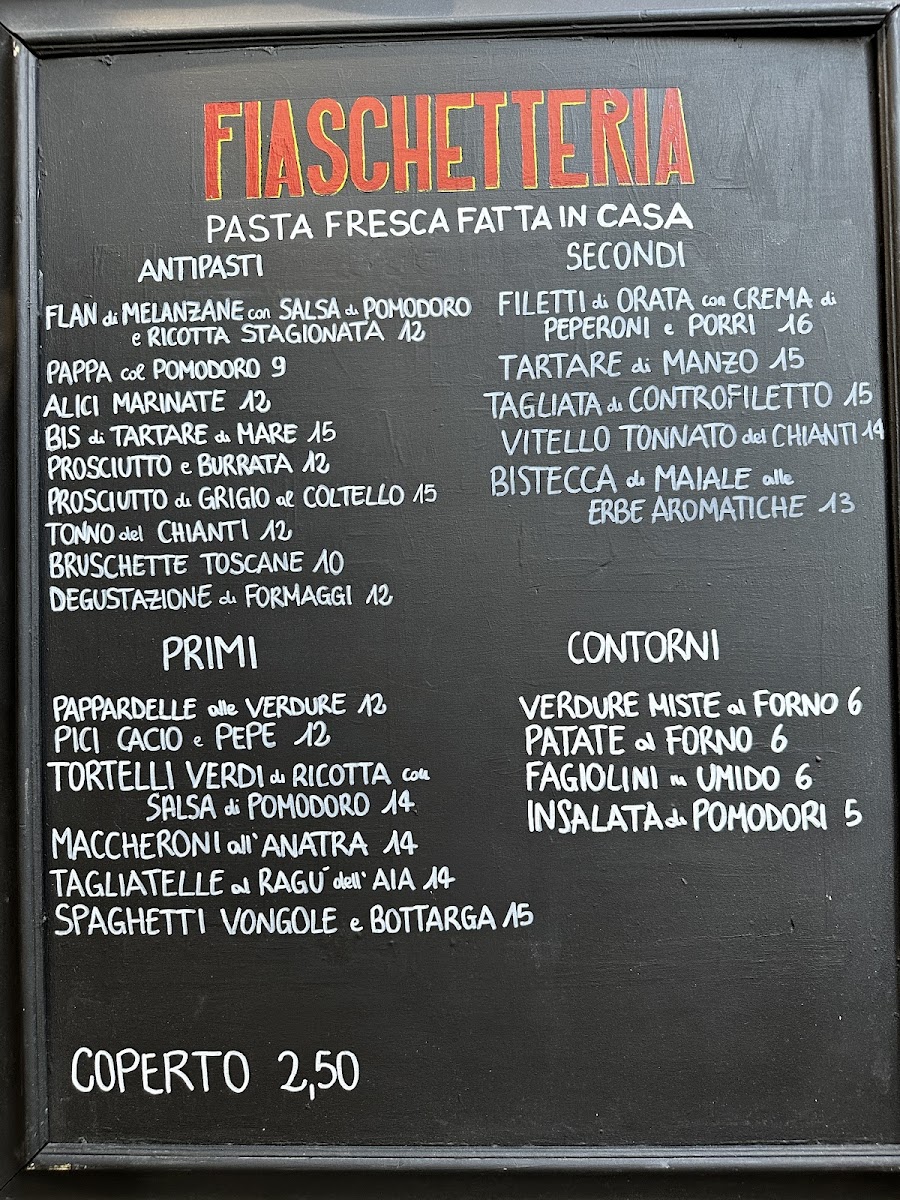 FIASCHETTERIA
PASTA FRESCA FATTA IN CASA
ANTIPASTI
FLAN di MELANZANE con SALSA di POMODORO
e RICOTTA STAGIONATA 12
PAPPA col POMODORO 9
ALICI MARINATE 12
BIS di TARTARE di MARE 15
PROSCIUTTO e BURRATA 12
PROSCIUTTO di GRIGIO al COLTELLO 15
TONNO del CHIANTI 12
BRUSCHETTE TOSCANE 10
DEGUSTAZIONE di FORMAGGI 12
SECONDI
FILETTI di ORATA con CREMA di
PEPERONI e PORRI 16
TARTARE di MANZO 15
TAGLIATA di CONTROFILETTO 15
VITELLO TONNATO del CHIANTI 14
BISTECCA di MAIALE alle
ERBE AROMATICHE 13
PRIMI
PAPPARDELLE alle VERDURE 12
PICI CACIO e PEPE 12
TORTELLI VERDI di RICOTTA con
SALSA di POMODORO 14
MACCHERONI all'ANATRA 14
TAGLIATELLE al RAGÚ dell'AIA 14
SPAGHETTI VONGOLE e BOTTARGA 15
CONTORNI
VERDURE MISTE al FORNO 6
PATATE al FORNO 6
FAGIOLINI in UMIDO 6
INSALATA di POMODORI 5
COPERTO 2,50